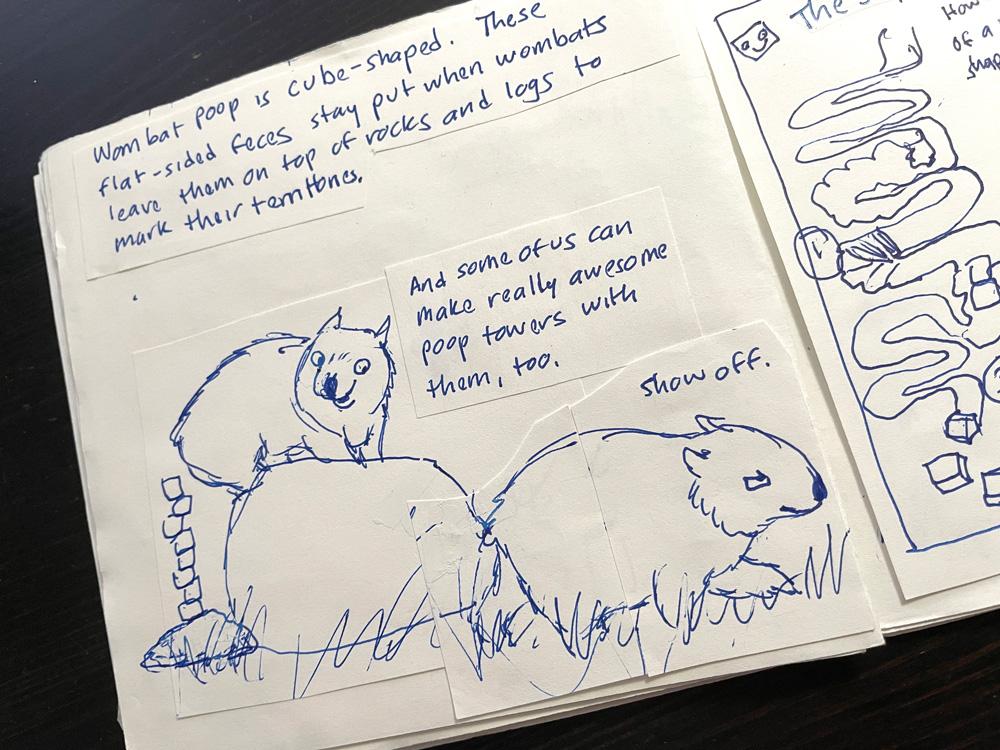 Wombat poop is cube-shaped. These
flat-sided feces stay put when wombats
leave them on top of rocks and logs to
mark their territories.
And some of us can
make really awesome
poop towers with
them, too.
show off.
The
How
of a
shap